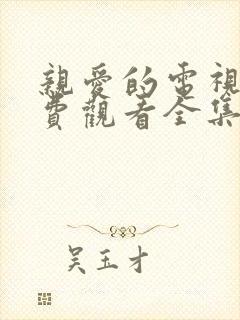 親愛的電視
費觀看全集
吴玉才